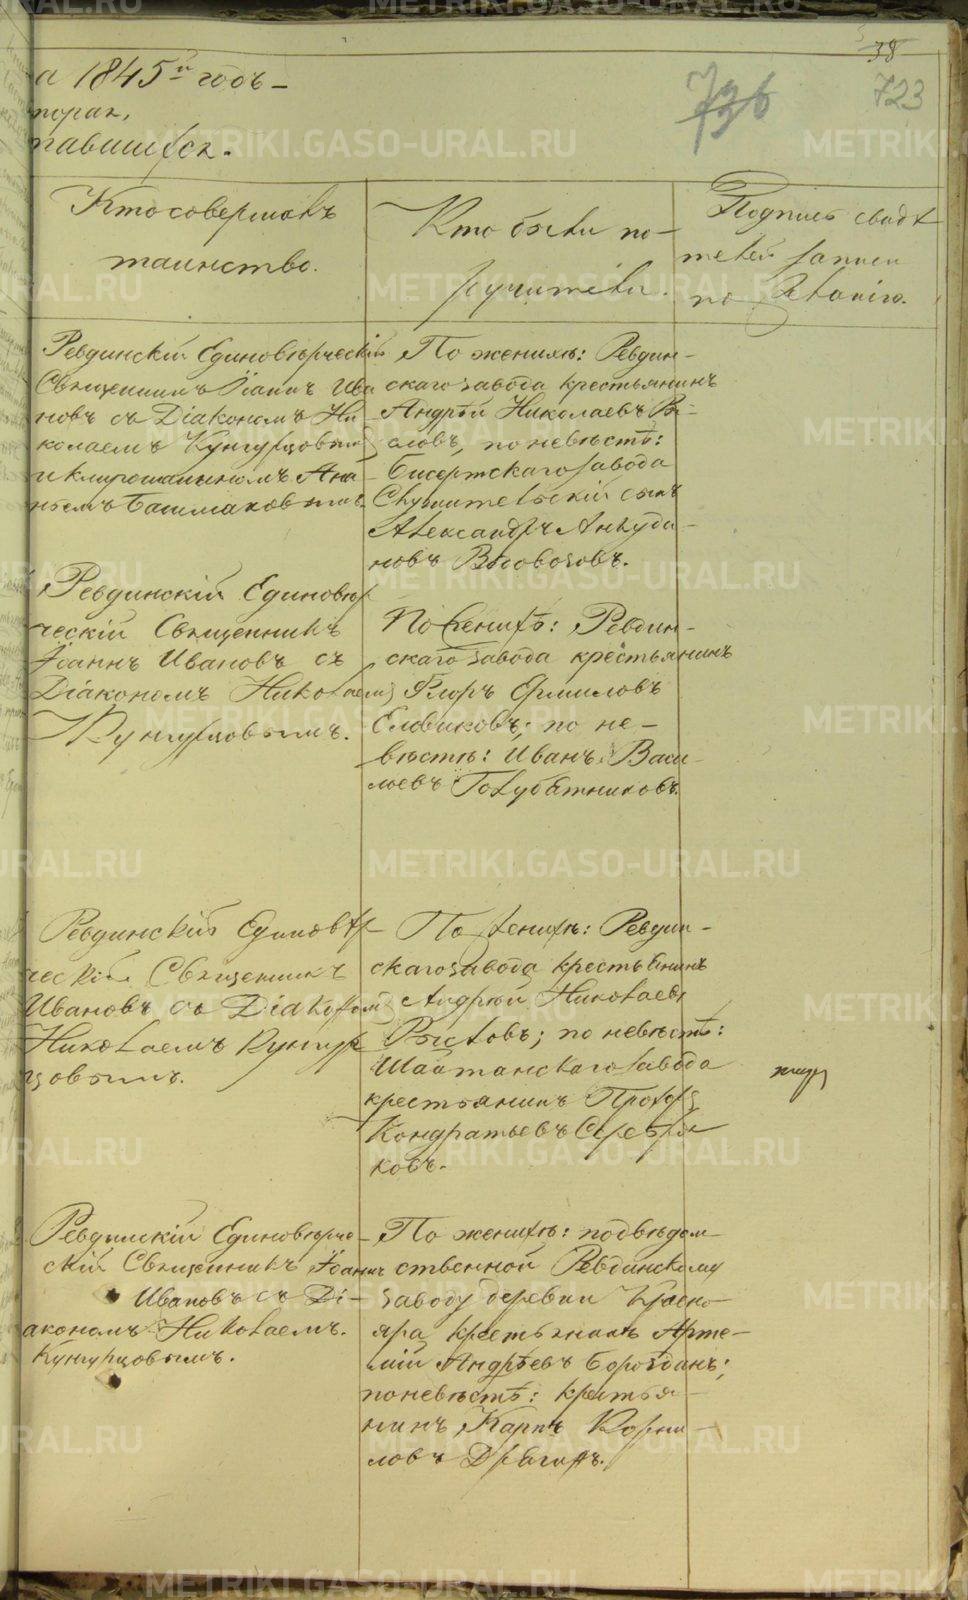 38
723
736
а 1845й годъ
Кто совершалъ
таинство.
Кто были по-
ручители.
Подпись свидѣ
телей записи
по желанію.
Ревдинскій Единовѣрческій
Священникъ Іоаннъ Ива
новъ съ Діакономъ Ни-
колаемъ Кунгурцовымъ
и клирошаниномъ Ана-
ньемъ Башмаковымъ.
По женихѣ: Ревдин-
скаго завода крестьянинъ
Андрей Николаевъ Вы-
словъ, по невѣстѣ:
Бисертскаго завода
Служительскій сынъ
Александръ Анкуди-
новъ Воловозовъ.
Ревдинскій Единовѣр
ческій Священникъ
Іоаннъ Ивановъ съ
Діакономъ Николаемъ
Кунгурцовымъ.
По женихѣ: Ревдин-
скаго завода крестьянинъ
Флоръ Ермиловъ
Еловиковъ; по не-
вѣстѣ: Иванъ Васи-
льевъ Голубятниковъ.
Ревдинскій Единовѣр-
ческій Священникъ
Ивановъ съ Діакономъ
Николаемъ Кунгур
цовымъ.
По женихѣ: Ревдин-
скаго завода крестьянинъ
Андрей Николаевъ
по невѣстѣ:
Шайтанскаго завода
крестьянинъ Прохоръ
Кондратьевъ Серебря
ковъ.
Ревдинскій Единовѣрче-
скій Священникъ Іоаннъ
Ивановъ съ Ді-
акономъ Николаемъ
Кунгурцовымъ.
По женихѣ: подвѣдом-
ственной Ревдинскому
заводу деревни Красно-
яра крестьянинъ Арте-
мій Андреевъ Бороздинъ;
по невѣстѣ: крестья-
нинъ Карпъ Корни-
ловъ Дрягинъ.
METRIKI.GASO-URAL.RU